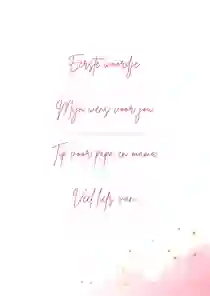 Eerste woordje
Mijn wens voor jou
Tip voor papa en mama
Veel liefs van